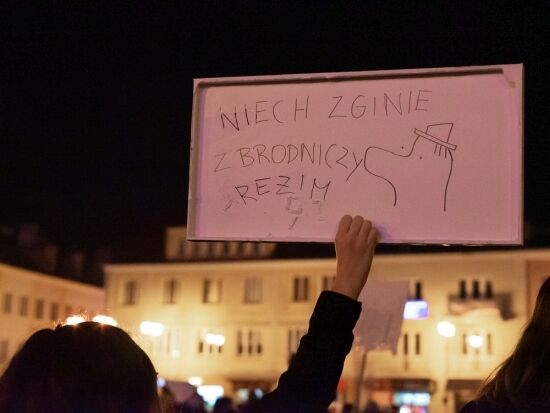 NIECH ZGINIE
ZBRODNICZY
REŻIM